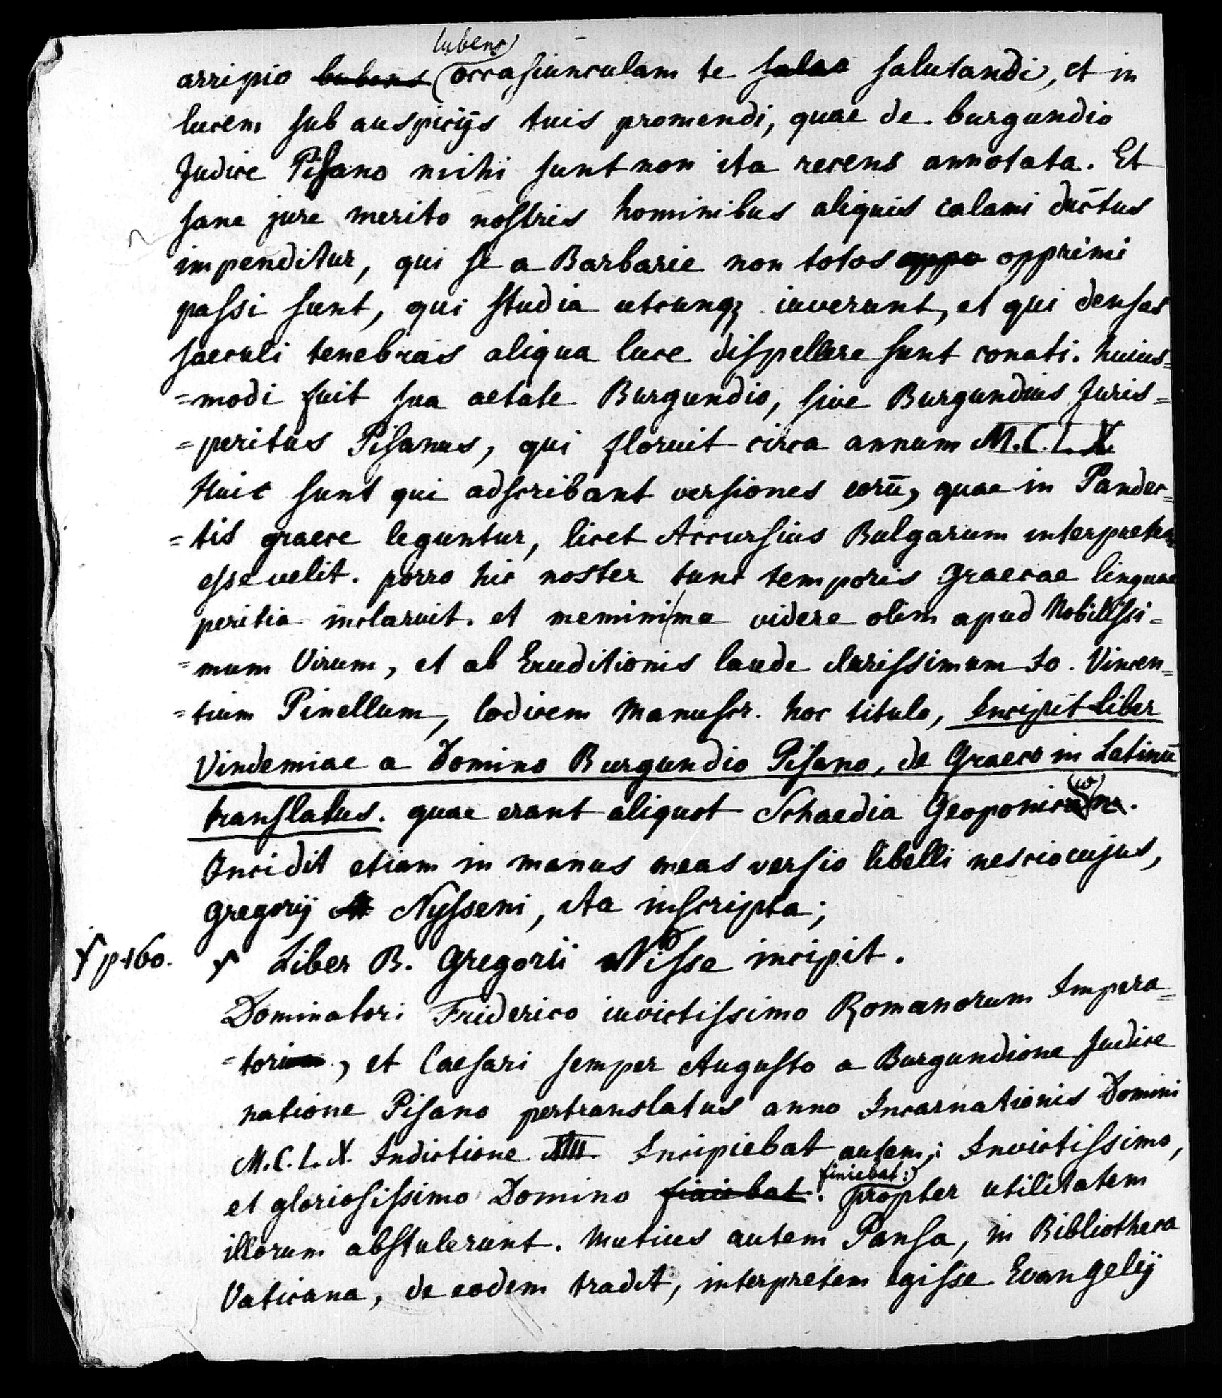 lubens
arripio lubens occasiunculam te salu salutandi, et in
lucem sub auspicijs tuis promendi, quae de burgundio
Judice Pisano mihi sunt non ita recens annotata. Et
sane jure merito nostris hominibus aliquis calami ductus
impenditur, qui se a Barbarie non totos oppo opprimi
passi sunt, qui studia utcunq; iuverunt, et qui densas
saeculi tenebras aliqua luce dispellere sunt conati. huius=
=modi fuit sua aetate Burgundio, sive Burgundius Juris=
=peritus Pisanus, qui floruit circa annum M.C.L.X.
Huic sunt qui adscribant versiones eorū, quae in Pandec=
=tis graece leguntur, licet Accursius Bulgarum interpretem
esse velit. porro hic noster tunc temporis Graecae linguae
peritia inclaruit. et memini me videre olim apud Nobilissi=
=mum Virum, et ab Eruditionis laude clarissimum Io. Vincen=
=tium Pinellum, Codicem Manuscr. hoc titulo, Incipit Liber
Vindemiae a Domino Burgundio Pisano, de Graeco in Latinū
translatus. quae erant aliquot Schaedia Geoponicων.
Incidit etiam in manus meas versio libelli nescio cujus,
Gregorij Nysseni, ita inscripta;
p. 160. Liber B. Gregorii Nisse incipit.
Dominatori Friderico invictissimo Romanorum Impera=
=tori, et Caesari semper Augusto a Burgundione Judice
natione Pisano pertranslatus anno Incarnationis Domini
M.C.L.X. Indictione VIII Incipiebat autem; Invictissimo,
finiebat:
et gloriosissimo Domino finiebat: propter utilitatem
illorum abstulerunt. Mutius autem Pansa, in Bibliotheca
Vaticana, de eodem tradit, interpretem egisse Evangelij